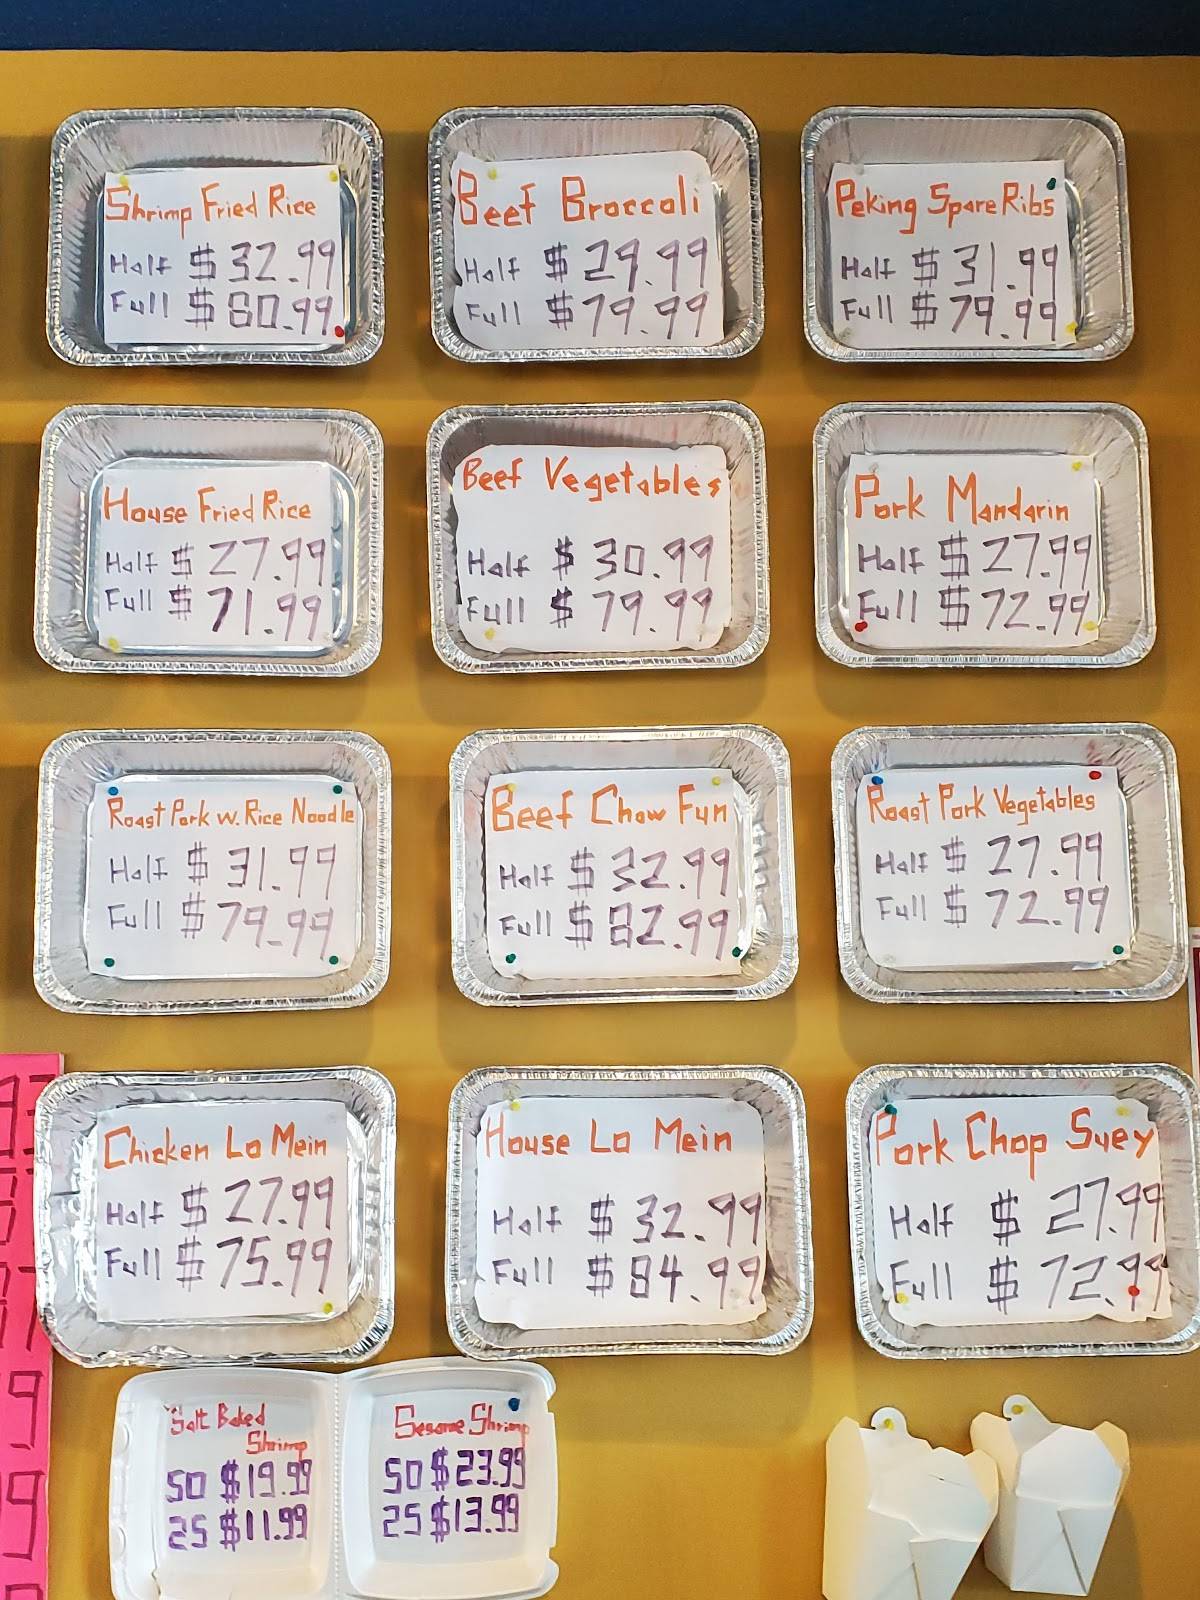 Shrimp Fried Rice
Half $ 32.99
Full $ 80.99
Beef Broccoli
Half $ 29.99
Full $ 79.99
Peking Spare Ribs
Half $ 31.99
Full $ 79.99
House Fried Rice
Half $ 27.99
Full $ 71.99
Beef Vegetables
Half $ 30.99
Full $ 79.99
Pork Mandarin
Half $ 27.99
Full $ 72.99
Roast Pork w. Rice Noodle
Half $ 31.99
Full $ 79.99
Beef Chow Fun
Half $ 32.99
Full $ 82.99
Roast Pork Vegetables
Half $ 27.99
Full $ 72.99
Chicken Lo Mein
Half $ 27.99
Full $ 75.99
House Lo Mein
Half $ 32.99
Full $ 84.99
Pork Chop Suey
Half $ 27.99
Full $ 72.99
Salt Baked
Shrimp
50 $19.99
25 $11.99
Sesame Shrimp
50 $23.99
25 $13.99